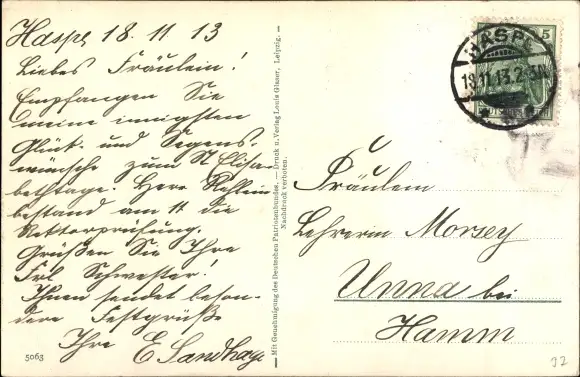 Haspe 18.11.13
Liebes Fräulein!
Empfangen Sie
meine innigsten
Glück- und Segens-
wünsche zum St Elisa-
bethtage. Herr
bestand am 11. die
Rektorprüfung.
Grüßen Sie Ihre
Frl Schwester!
Ihnen sendet beson-
dere Festgrüße
Ihre E Sandhage
5063
Mit Genehmigung des Deutschen Patriotenbundes. — Druck u. Verlag Louis Glaser, Leipzig. —
Nachdruck verboten.
HASPE
18.11.13.
5
Fräulein
Lehrerin Morsey
Unna bei
Hamm